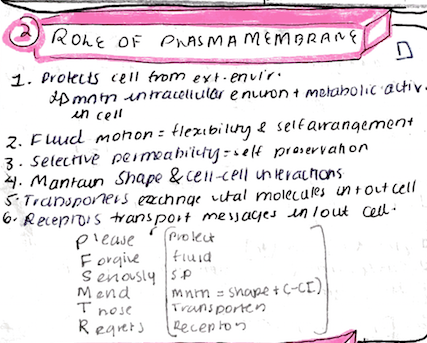 2 ROLE OF PLASMA MEMBRANE
1. Protects cell from ext. envir.
↳ mntn intracellular environ + metabolic activ.
in cell
2. Fluid motion = flexibility & self arrangement
3. Selective permeability = self preservation
4. Mantain Shape & cell-cell interactions
5. Transporters exchnge vital molecules in + out cell
6. Receptors transport messages in/out cell.
Please Protect
Forgive fluid
Seriously S.P
Mend mntn = shape + C-CI
Those Transporters
Regrets Receptors